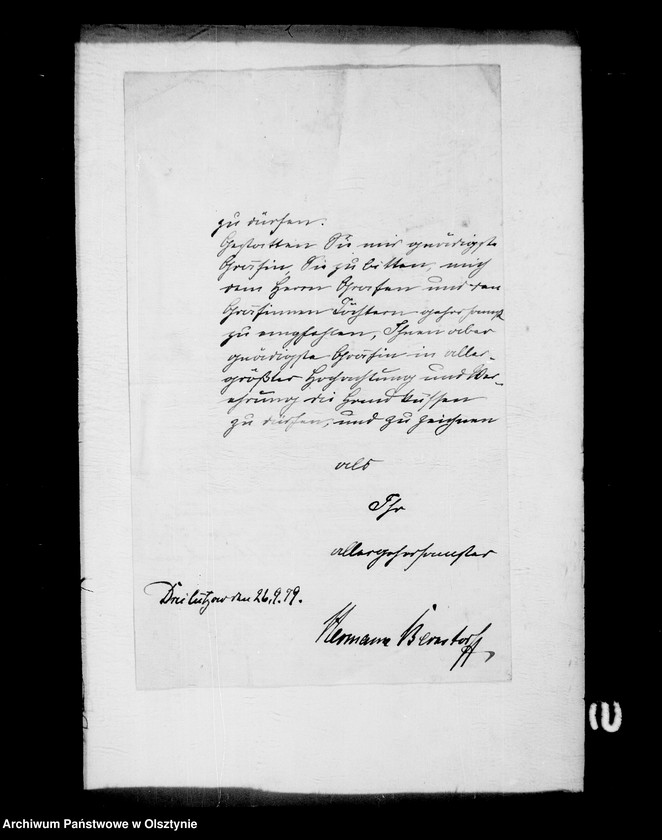 zu dürfen.
Gestatten Sie mir gnädigste
Gräfin, Sie zu bitten, mich
dem Herrn Grafen und den
Gräfinnen Töchtern gehorsamst
zu empfehlen, Ihnen aber
gnädigste Gräfin in aller-
größter Hochachtung und Ver-
ehrung die Hand küssen
zu dürfen, und zu zeichnen
als
Ihr
allergehorsamster
Dreilützow den 26.9.79.
Hermann Bernstorff
Archiwum Państwowe w Olsztynie